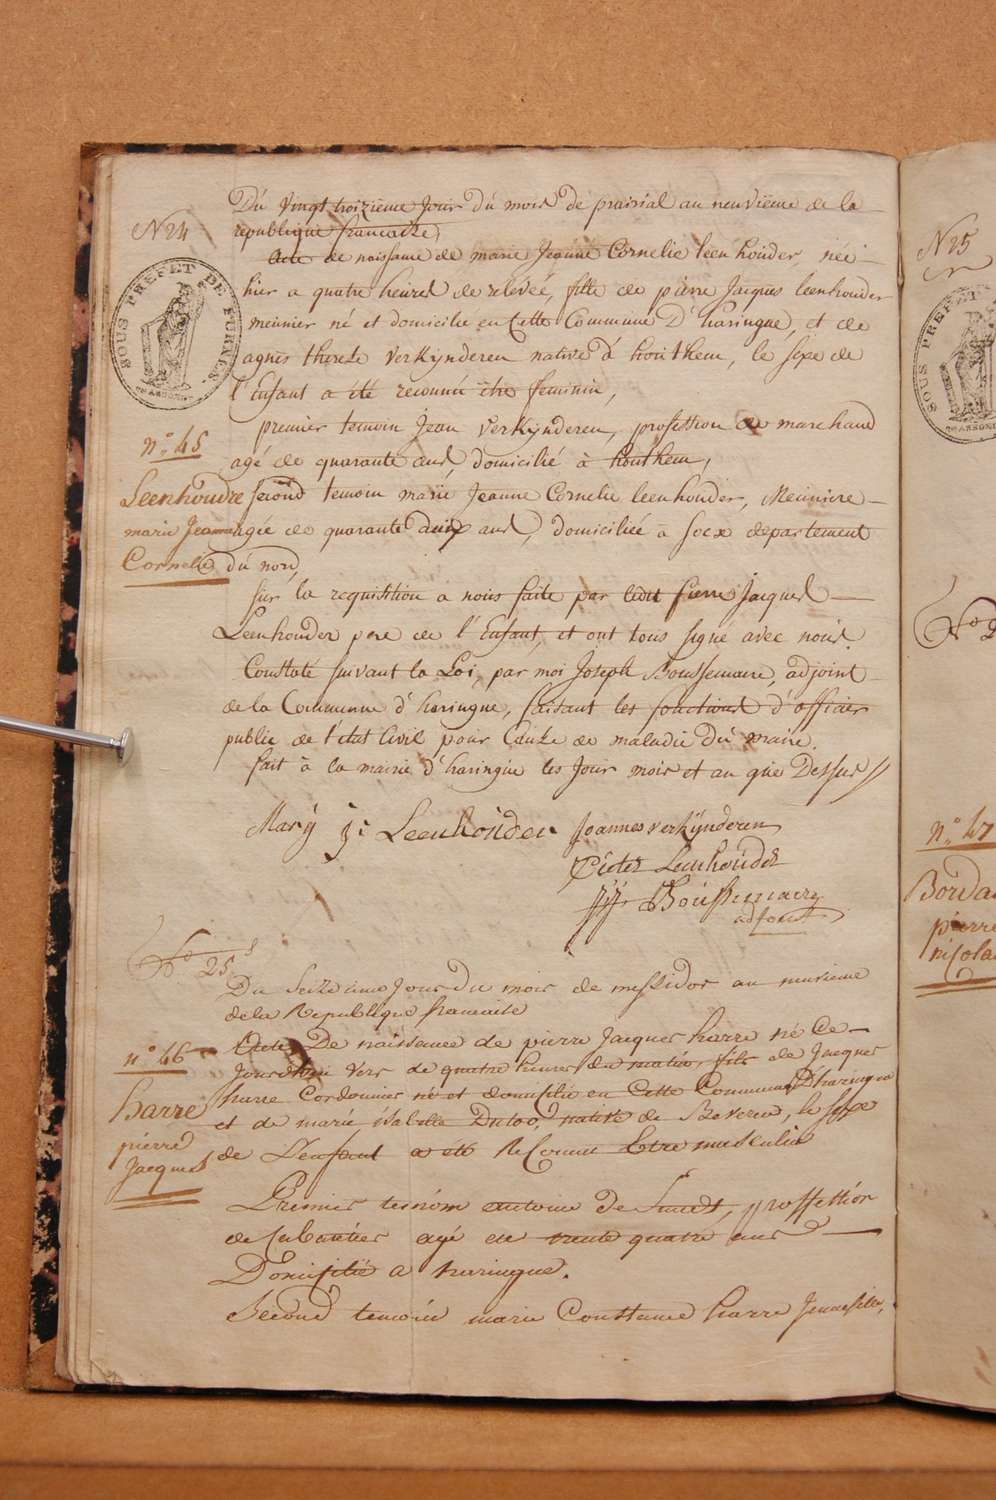 N 24
SOUS PREFET DE FURNES.
Du vingt troizieme Jour du mois de prairial au neuvieme de la
republique francaize,
Acte de naissance de marie Jeanne Cornelie leenhouder, néé
hier a quatre heures de relevéé, fille de pierre Jacques leenhouder
meunier né et domicilié en Cette Commune D'haringue, et de
agnis therese verkÿnderen native d'houthem, le sexe de
l'Enfant a été reconnu être feminin,
premier temoin Jean verkÿnderen, profession de marchand
agé de quarante ans, domicilié à houthem,
second temoin marie Jeanne Cornelie leenhouder, Meuniere
agée de quarante deux ans, domiciliéé à socx departement
du nord,
n.° 45
Leenhoudre
marie Jeanne
Cornelie
sur la requisition a nous faite par ledit pierre Jacques
Leenhouder pere de l'Enfant, et ont tous signé avec nous.
Constaté suivant la Loi, par moi Joseph Boussemaere, adjoint
de la Commune d'haringue, faisant les fonctions d'officier
public de l'état Civil pour Cause de maladie du maire.
fait à la mairie d'haringue les Jour mois et an que Dessus //
Marÿ j: c Leenhouder Joannes verkÿnderen
Pieter Leenhouder
Boussemaere
adjoint
N.° 25
Du Seizieme Jour du mois de messidor au neuvieme
de la Republique francaise
Acte De naissance de pierre Jacques harre né Ce
Jourdhui vers de quatre heures du matin, fils de Jacques
harre Cordonnier né et domisilié en Cette Commune D'haringue
et de marie isabelle Duloo, native de Beveren, le sexe
de L'enfant a été Reconnu Etre masculin
n.° 46
harre
pierre
Jacques
Premier temoin antoine de Smedt, proffession
de Cabaretier agé de trente quatre ans
Domisilié a haringue.
Second temoin marie Constance harre
N 25
SOUS PREFET
n.° 47
Borda
pierre
nicola